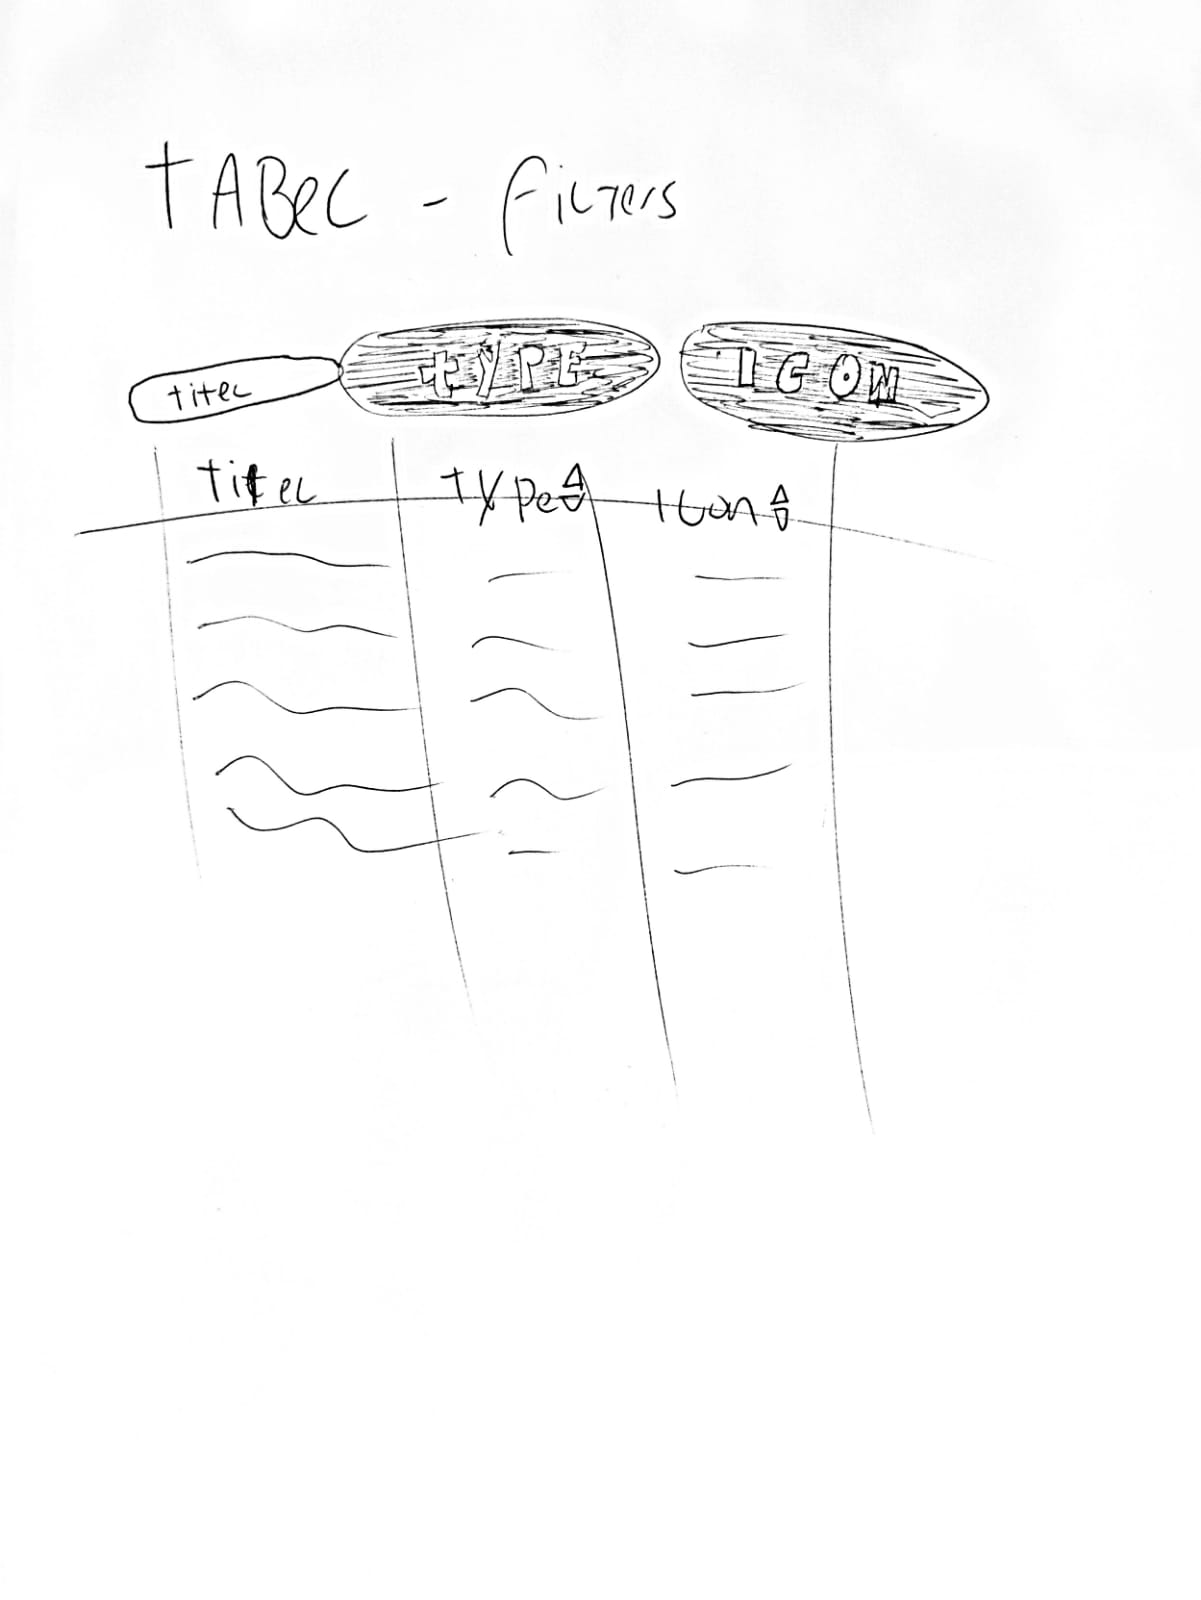 tABeL - filters
titel tYPE ICON
titel type Icon